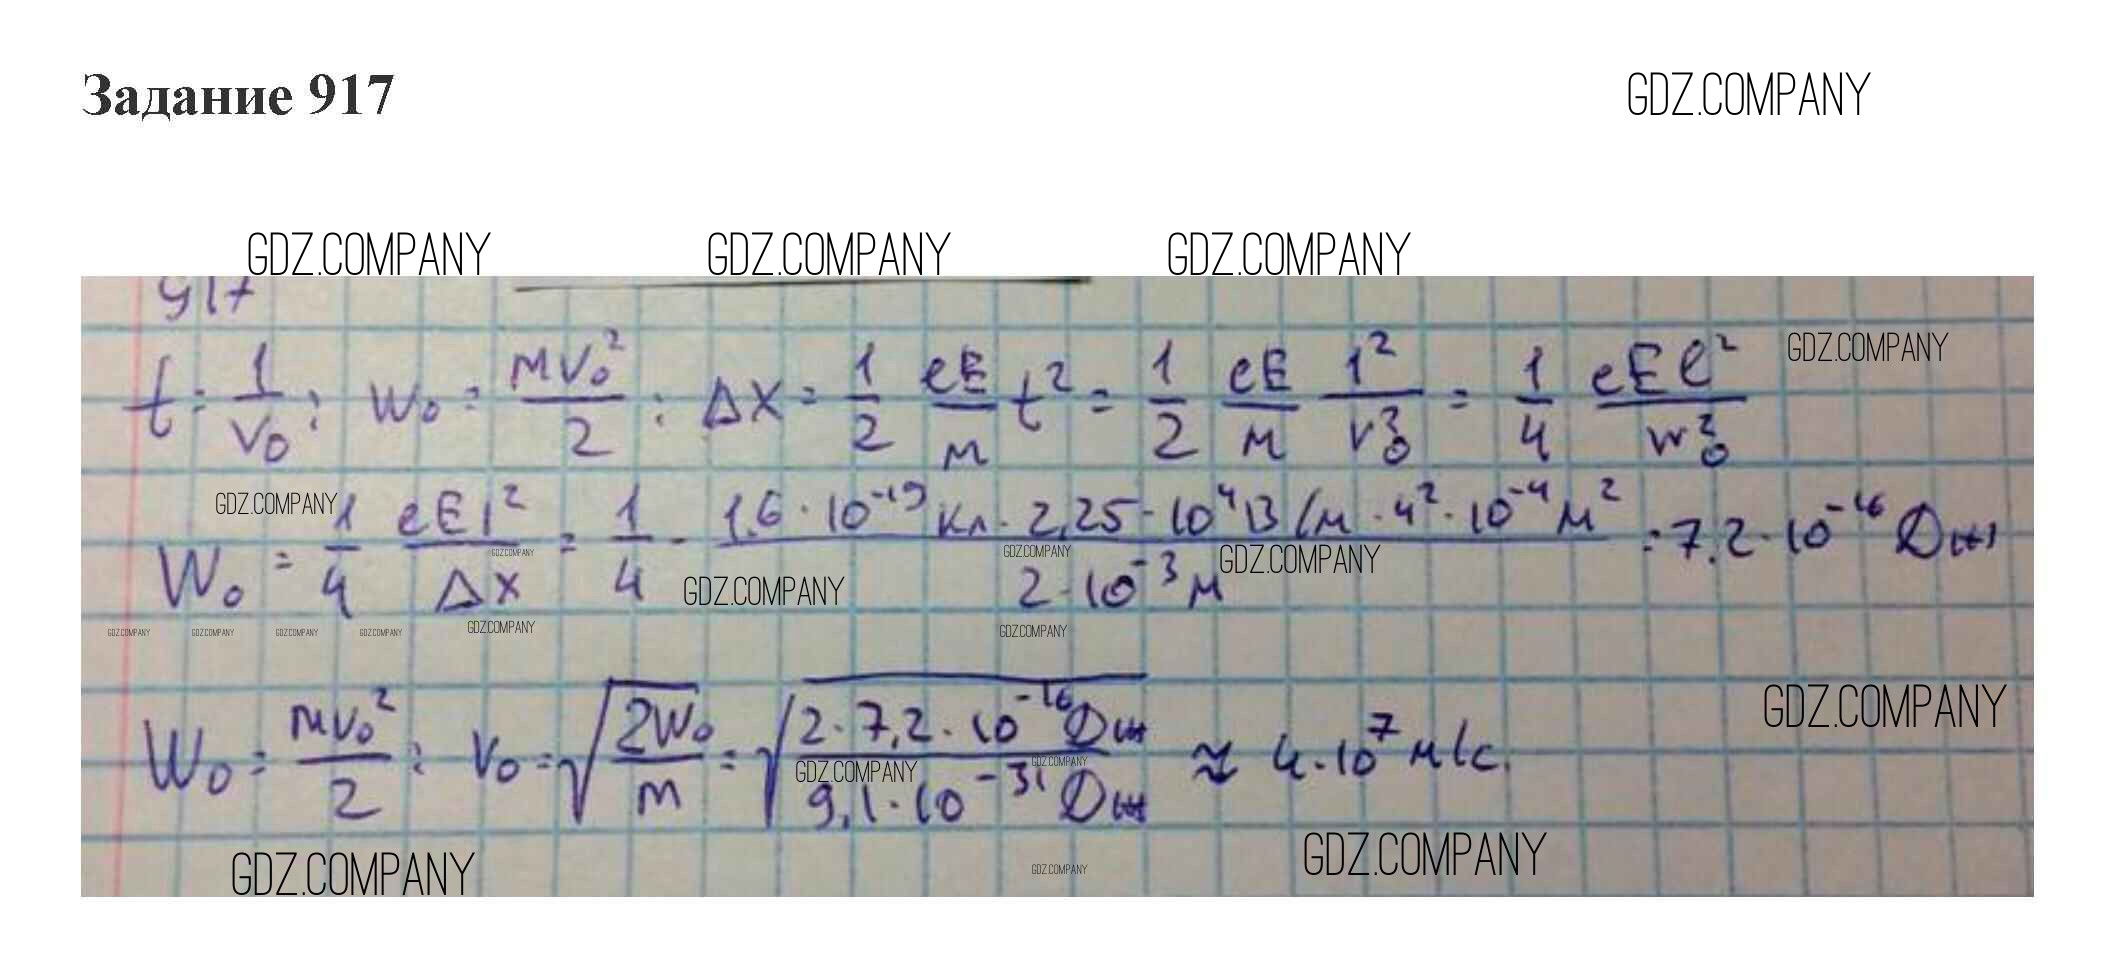 Задание 917
GDZ.COMPANY
GDZ.COMPANY GDZ.COMPANY GDZ.COMPANY
917
t = 1/v₀ ; W₀ = mv₀²/2 ; Δx = 1/2 eE/м t² = 1/2 eE/м 1²/v₀² = 1/4 eEl²/w₀²
GDZ.COMPANY
GDZ.COMPANY
W₀ = 1/4 eEl²/Δx = 1/4 · 1,6·10⁻¹⁹Кл·2,25·10⁴В/м·4²·10⁻⁴м²/2·10⁻³м = 7,2·10⁻¹⁶ Дж
GDZ.COMPANY GDZ.COMPANY GDZ.COMPANY
GDZ.COMPANY
GDZ.COMPANY GDZ.COMPANY GDZ.COMPANY GDZ.COMPANY GDZ.COMPANY GDZ.COMPANY
GDZ.COMPANY
W₀ = mv₀²/2 ; v₀ = √(2W₀/m) = √(2·7,2·10⁻¹⁶Дж/9,1·10⁻³¹Дж) ≈ 4·10⁷ м/с.
GDZ.COMPANY GDZ.COMPANY
GDZ.COMPANY GDZ.COMPANY GDZ.COMPANY